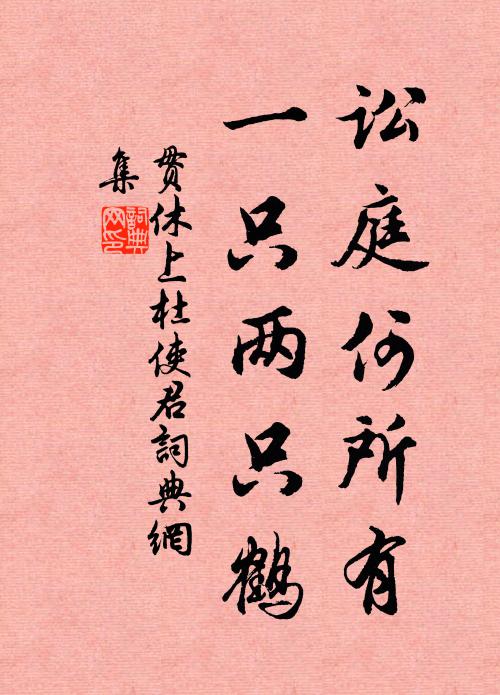 讼庭何所有
一只两只鹤
贯休上杜使君詞典網
集
詞典网印